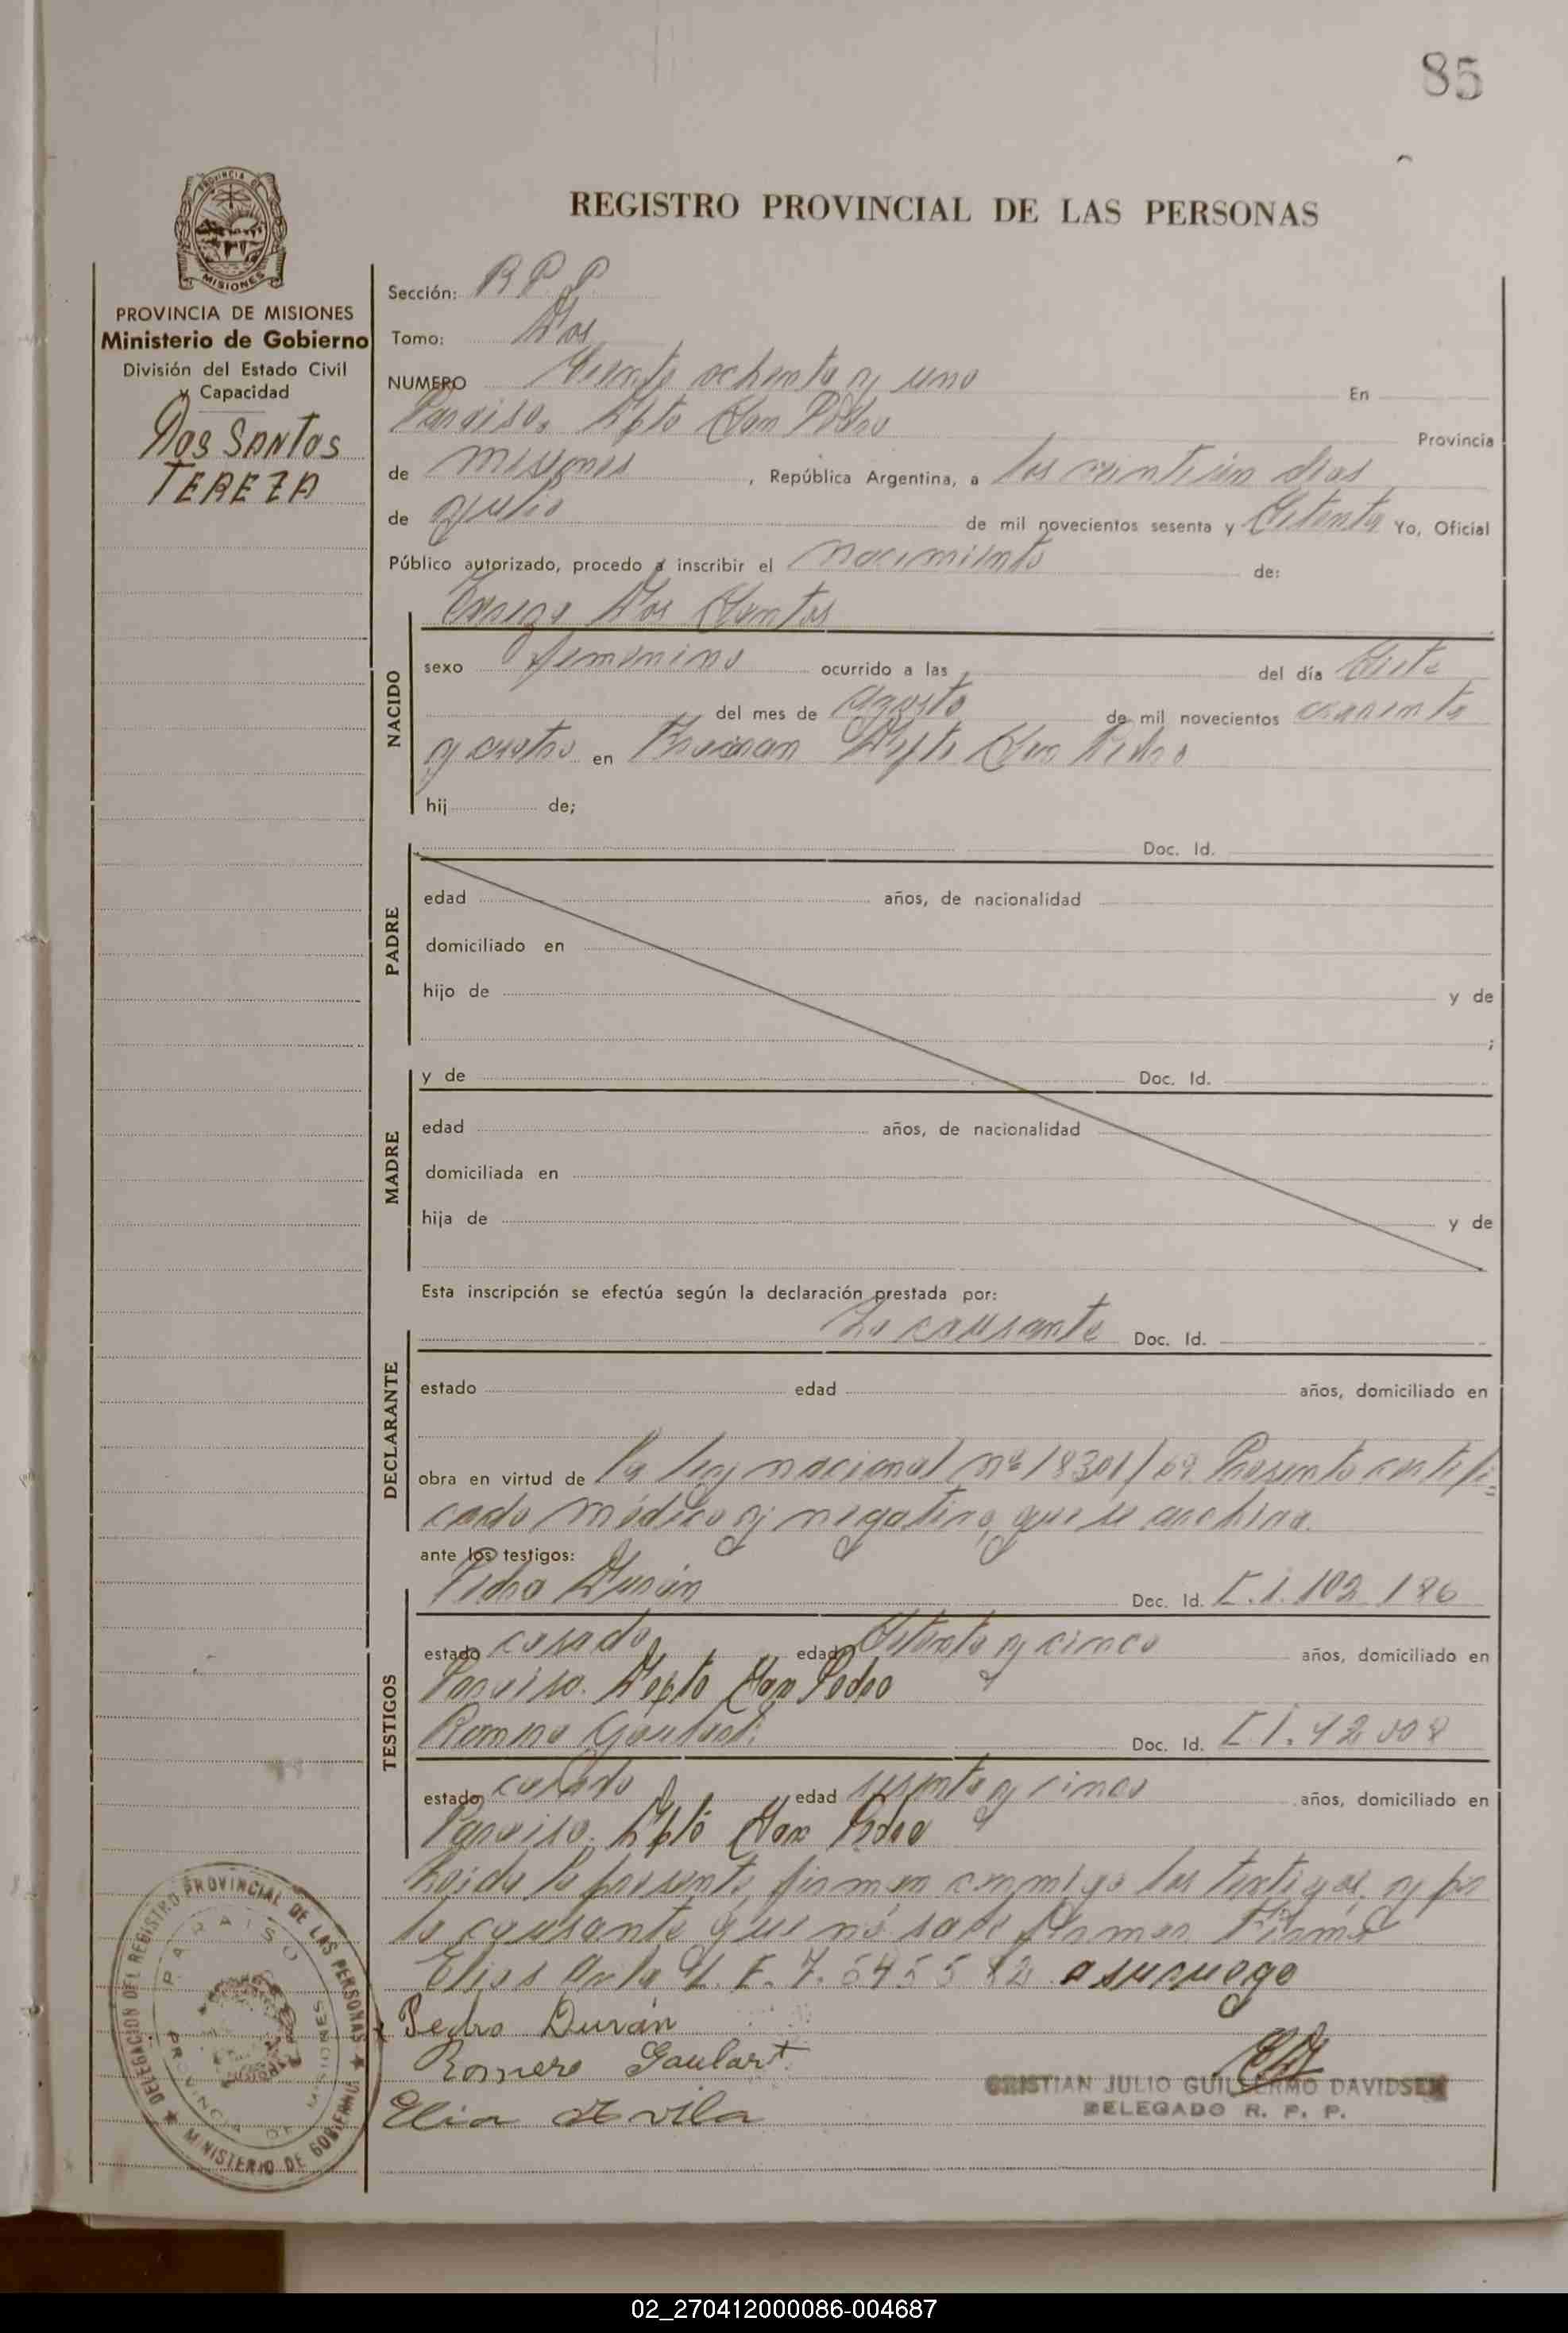 85
PROVINCIA DE
MISIONES
REGISTRO PROVINCIAL DE LAS PERSONAS
PROVINCIA DE MISIONES
Ministerio de Gobierno
División del Estado Civil
y Capacidad
DOS SANTOS
TEREZA
Sección: R P. P.
Tomo: Dos
NUMERO Ciento ochenta y uno En
Paraiso, Dpto San Pedro Provincia
de misiones, República Argentina, a los veintiún dias
de julio de mil novecientos sesenta y Setenta Yo, Oficial
Público autorizado, procedo a inscribir el nacimiento de:
Tereza Dos Santos
NACIDO
sexo femenino ocurrido a las del día Siete
del mes de agosto de mil novecientos cuarenta
y cuatro en Dpto San Pedro
hij de;
PADRE
Doc. Id.
edad años, de nacionalidad
domiciliado en
hijo de y de
;
MADRE
y de Doc. Id.
edad años, de nacionalidad
domiciliada en
hija de y de
Esta inscripción se efectúa según la declaración prestada por:
DECLARANTE
La causante Doc. Id.
estado edad años, domiciliado en
obra en virtud de la ley nacional nº 18301/69. Presento certifi=
cado médico y negativo, que se archiva.
ante los testigos:
TESTIGOS
Pedro Durán Doc. Id. C.I. 102 186
estado casado edad Setenta y cinco años, domiciliado en
Paraiso. Depto San Pedro
Romero Goulart Doc. Id. C I. 42 008
estado casado edad sesenta y cinco años, domiciliado en
Paraiso. Dpto San Pedro
Leida la presente, firman conmigo los testigos, y por
la causante que no sabe firmar Firma
Elias a su ruego
Pedro Durán
Romero Goulart
Elia Avila
CRISTIAN JULIO GUILLERMO DAVIDSEN
DELEGADO R. P. P.
DELEGACION DEL REGISTRO PROVINCIAL DE LAS PERSONAS
MINISTERIO DE GOBIERNO
PARAISO
PROVINCIA DE MISIONES
02_270412000086-004687